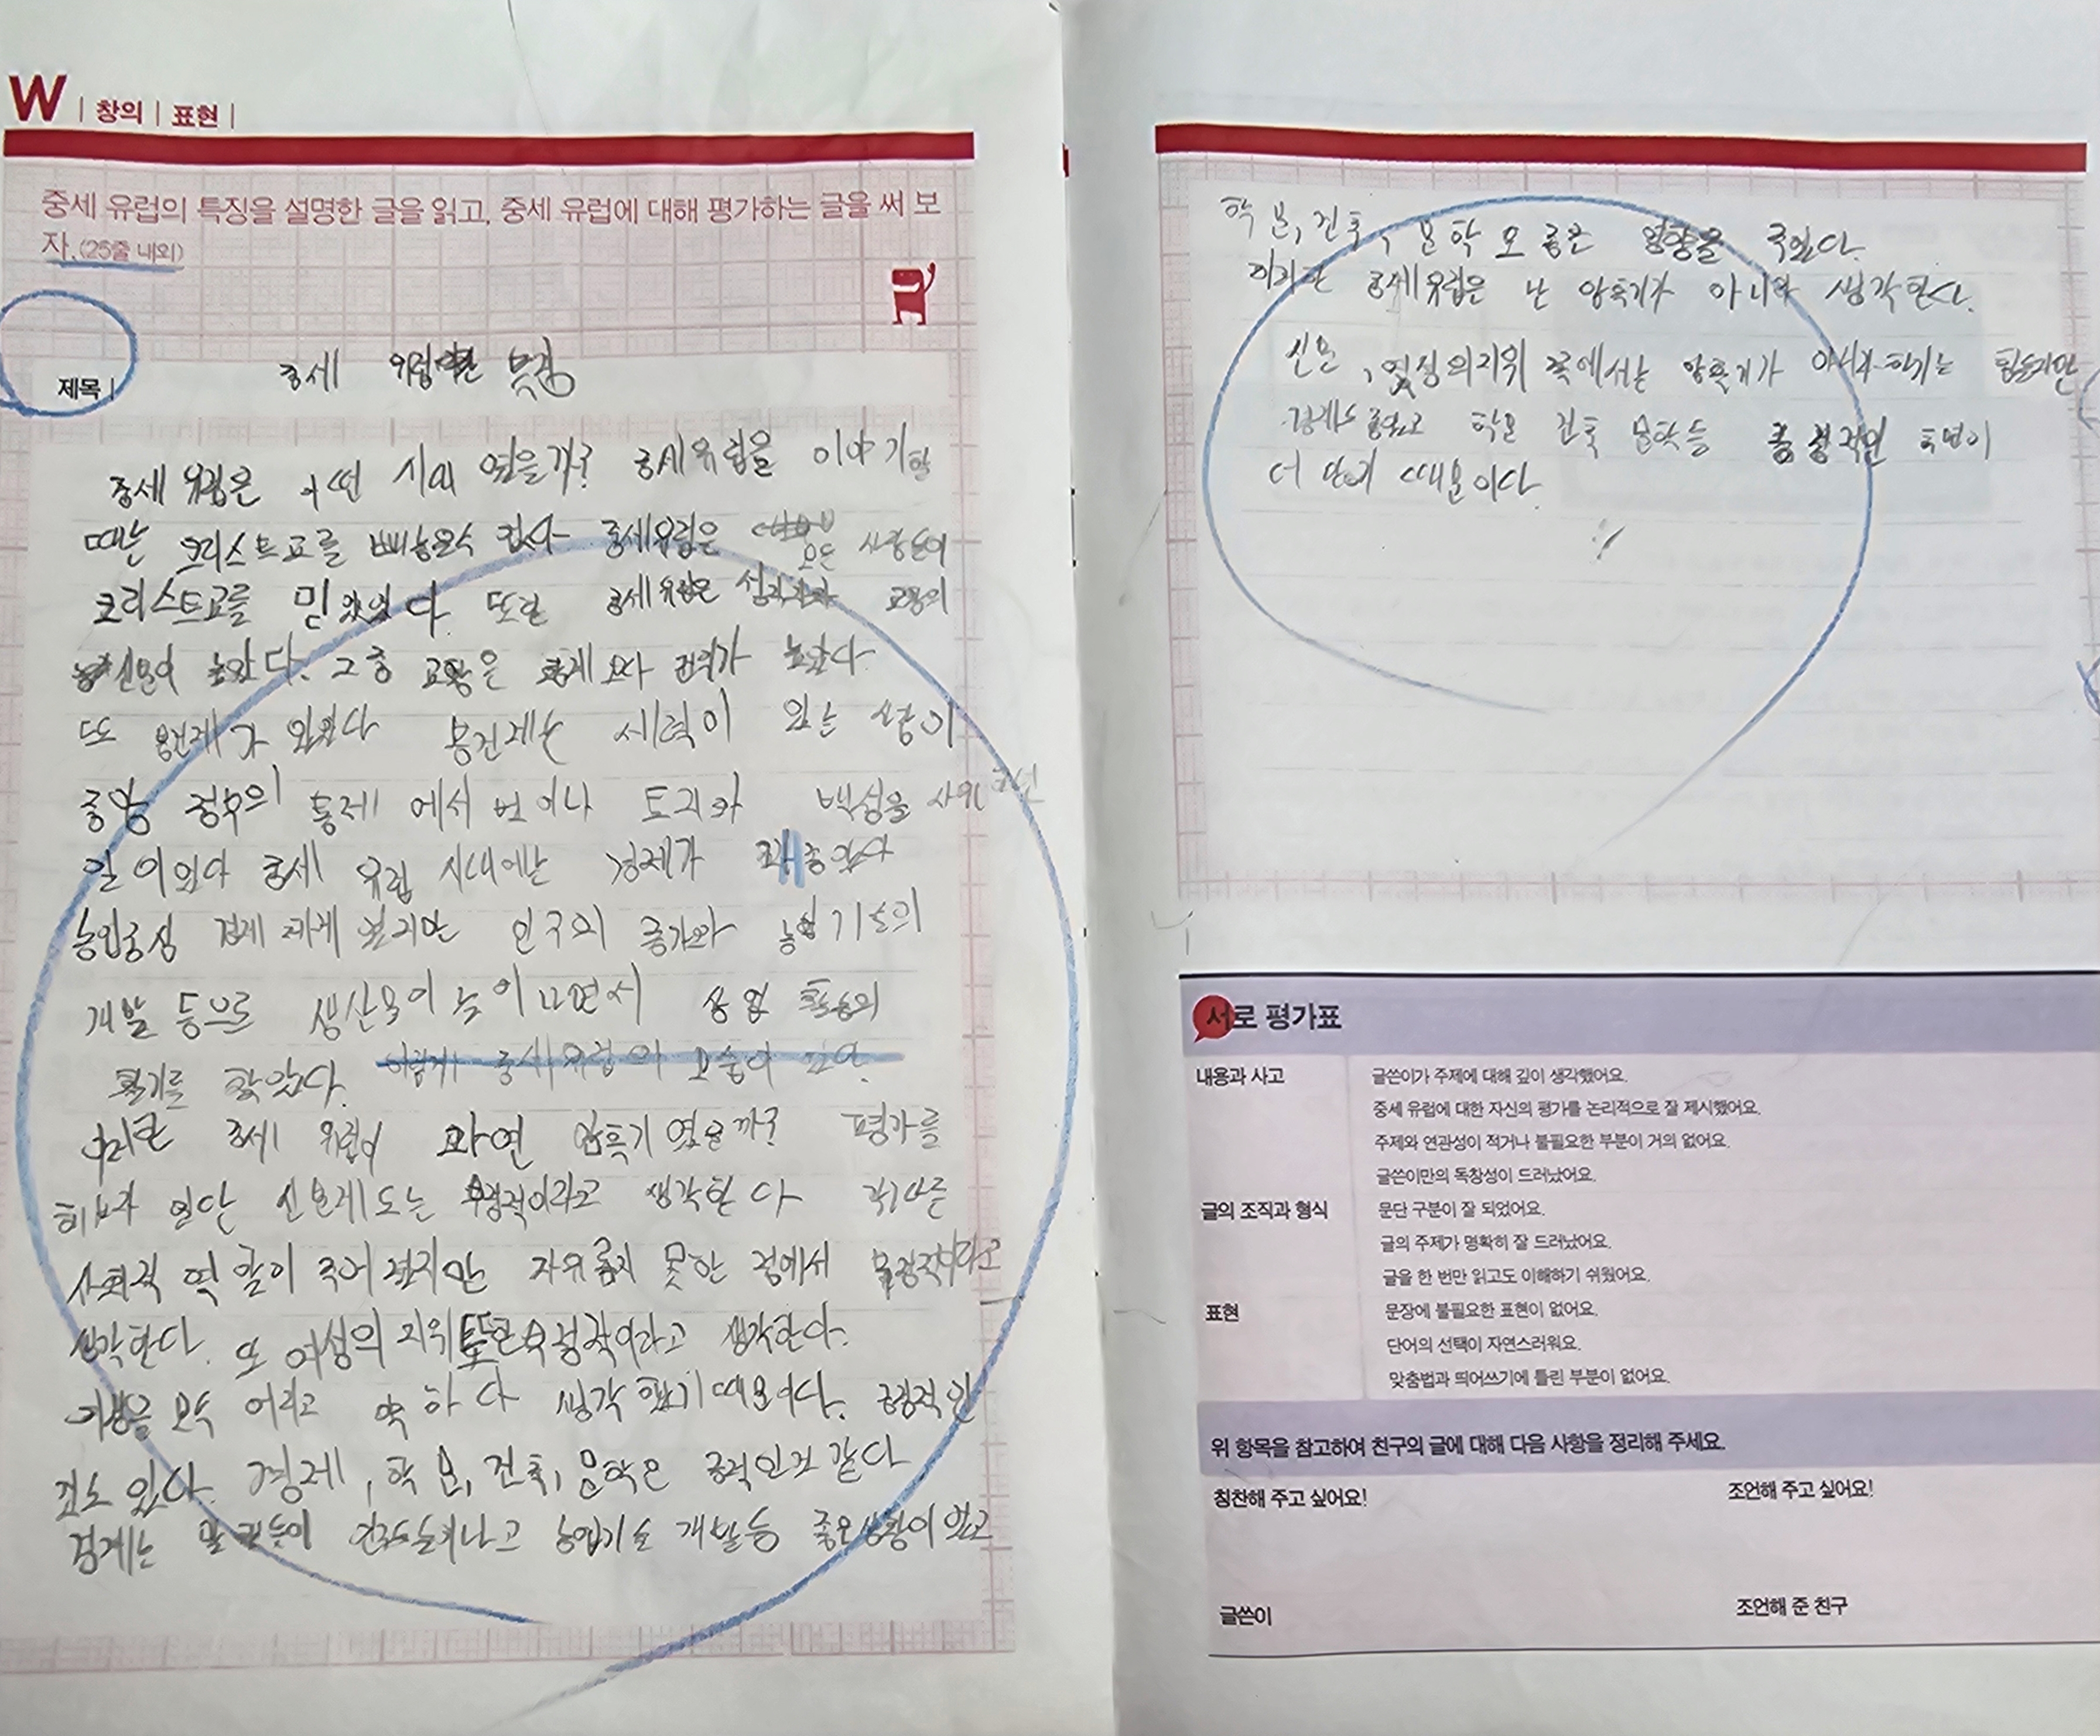 W | 창의 | 표현 |
중세 유럽의 특징을 설명한 글을 읽고, 중세 유럽에 대해 평가하는 글을 써 보
자.(25줄 내외)
제목 | 중세 유럽
중세 유럽은 어떤 시대 였을까? 중세유럽을 이야기할
때는 크리스트교를 빼놓을수 없다 중세유럽은 모든 사람들이
크리스트교를 믿었었다. 또한 중세유럽은 성직자와 교황의
신분이 높았다. 그 중 교황은 황제 보다 권력가 높았다
또 봉건제가 있었다 봉건제는 세력이 있는 사람이
중앙 정부의 통제 에서 벗어나 토지와 백성을
일 이었다 중세 유럽 시대에는 경제가 좋았다
농업중심 경제 체계 였지만 인구의 증가와 농업 기술의
개발 등으로 생산물이 늘어나면서 상업 활동의
활기를 찾았다. 이렇게 중세 유럽의
이러한 중세 유럽이 과연 암흑기 였을까? 평가를
해보자 일단 신분제도는 부정적이라고 생각한다 각기다른
사회적 역할이 주어 졌지만 자유롭지 못한 점에서 부정적이라고
생각한다. 또 여성의 지위 또한 부정적이라고 생각한다.
여성을 모두 어리고 약하다 생각 했기 때문이다. 긍정적인
것도 있다. 경제, 학문, 건축, 문학은 긍적인것 같다
경제는 인구도늘어나고 농업기술 개발등 좋은상황이 있고
학문, 건축, 문학 모두 좋은 영향을 주었다.
이러한 중세유럽은 난 암흑기가 아니라 생각한다.
신분, 여성의지위 쪽에서는 암흑기가 아니라 하기는 힘들지만
경제도 좋았고 학문 건축 문학등 긍정적인 측면이
더 많기 때문이다.
서로 평가표
내용과 사고 글쓴이가 주제에 대해 깊이 생각했어요.
중세 유럽에 대한 자신의 평가를 논리적으로 잘 제시했어요.
주제와 연관성이 적거나 불필요한 부분이 거의 없어요.
글쓴이만의 독창성이 드러났어요.
글의 조직과 형식 문단 구분이 잘 되었어요.
글의 주제가 명확히 잘 드러났어요.
글을 한 번만 읽고도 이해하기 쉬웠어요.
표현 문장에 불필요한 표현이 없어요.
단어의 선택이 자연스러워요.
맞춤법과 띄어쓰기에 틀린 부분이 없어요.
위 항목을 참고하여 친구의 글에 대해 다음 사항을 정리해 주세요.
칭찬해 주고 싶어요! 조언해 주고 싶어요!
글쓴이 조언해 준 친구